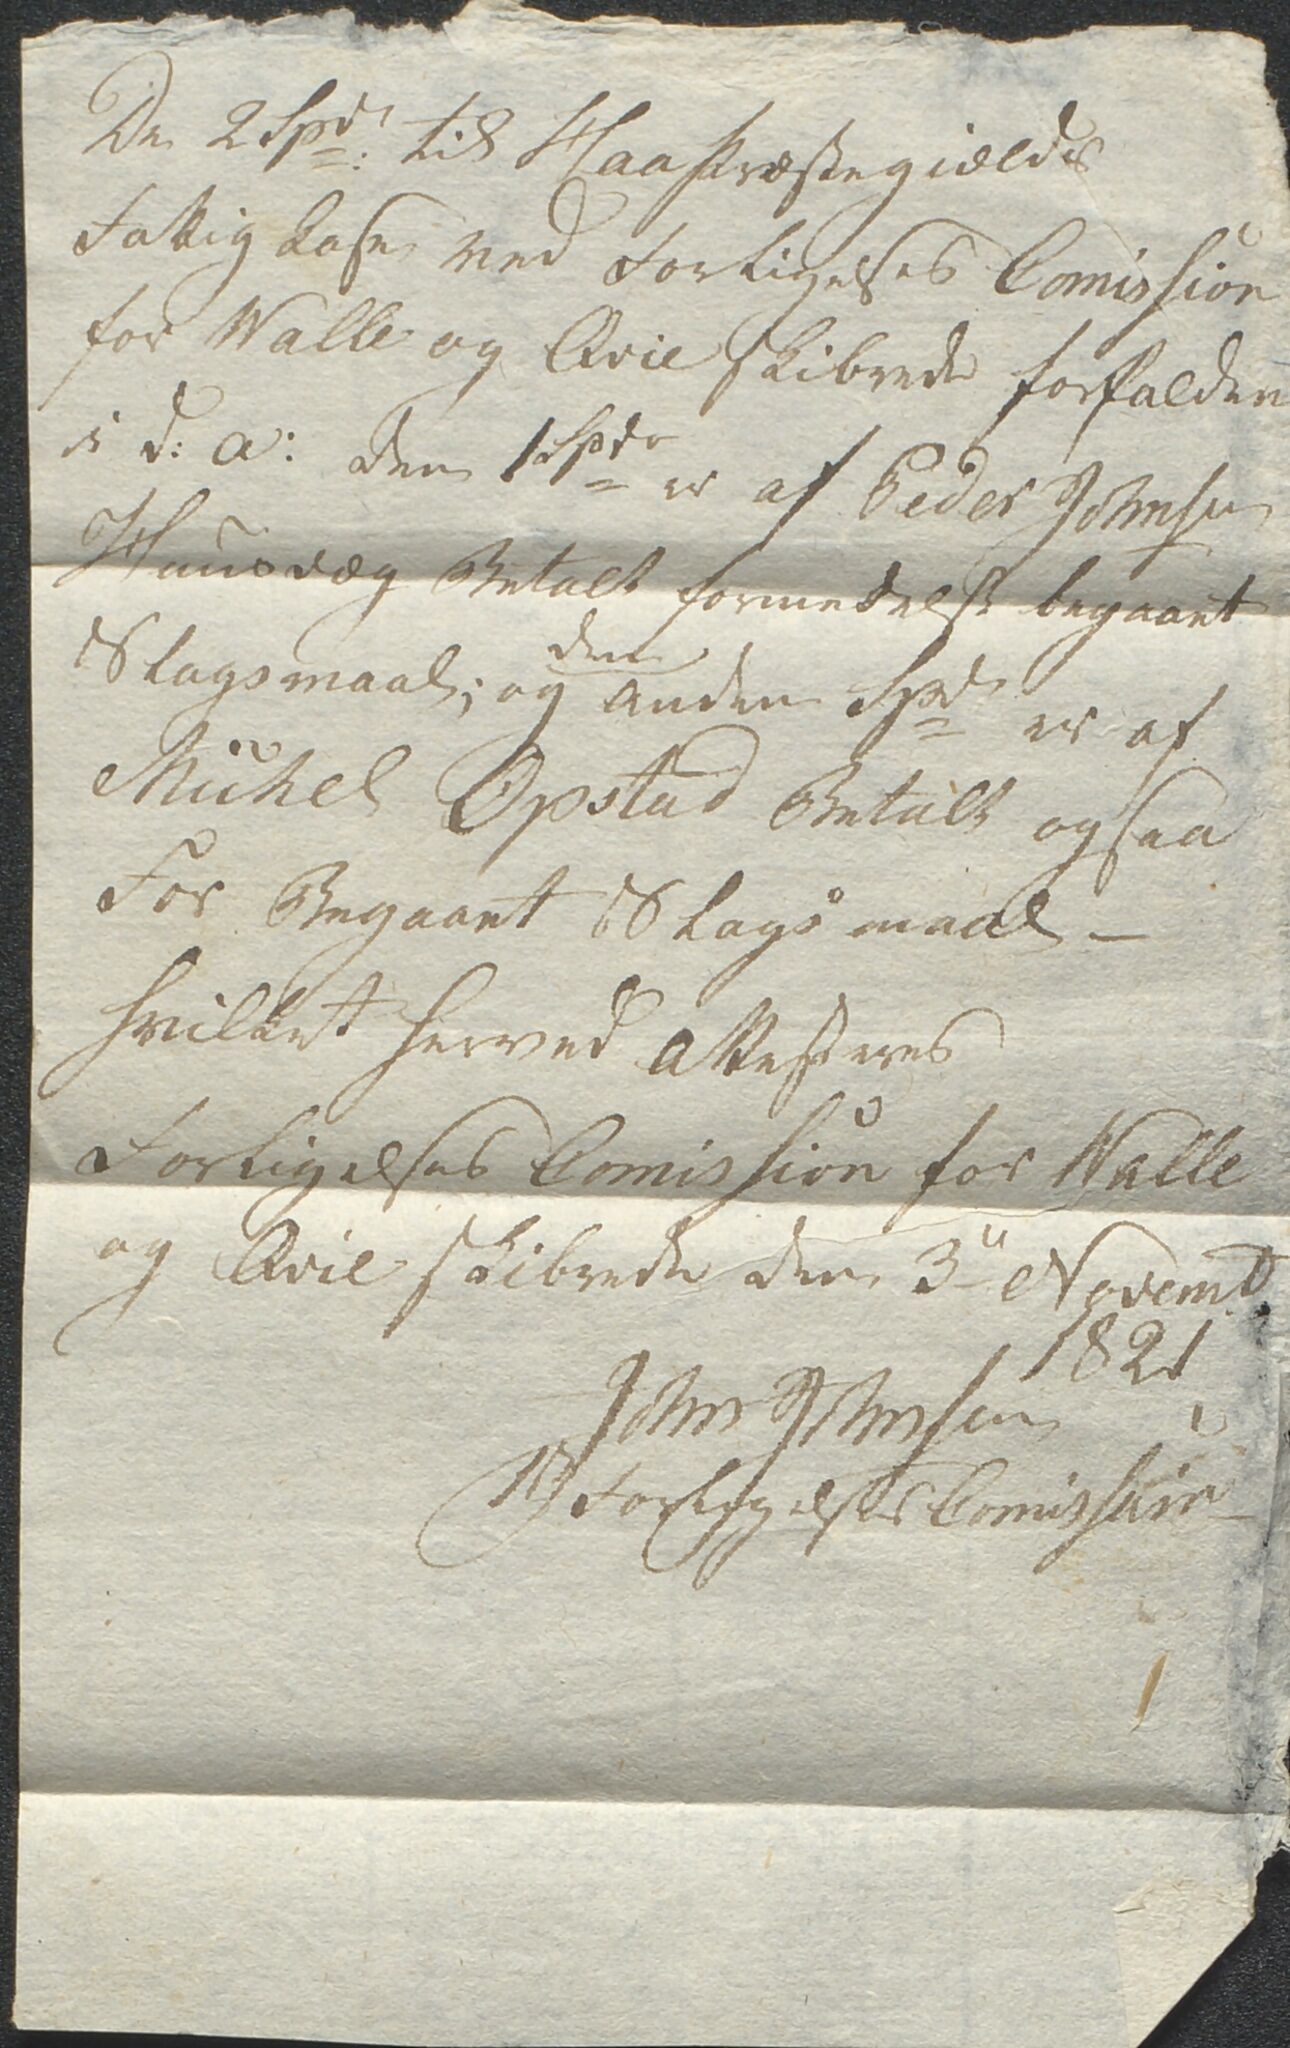 De 2 Spd: til Haa Præstegields
Fattig Kase ved Forligelses Comission
for Walle og Qvie skibrede forfalden
i d: a: den 1 Spdr er af Peder Johnsen
Huusvæg Betalt formedelst begaaet
Slagsmaal; og den anden Spd er af
Michel Opstad Betalt ogsaa
For Begaaet Slagsmaal –
hvilket herved Attesteres
Forligelses Comission for Walle
og Qvie skibrede den 3 Novembr
1821
John Johnsen
Forligelses Comissær